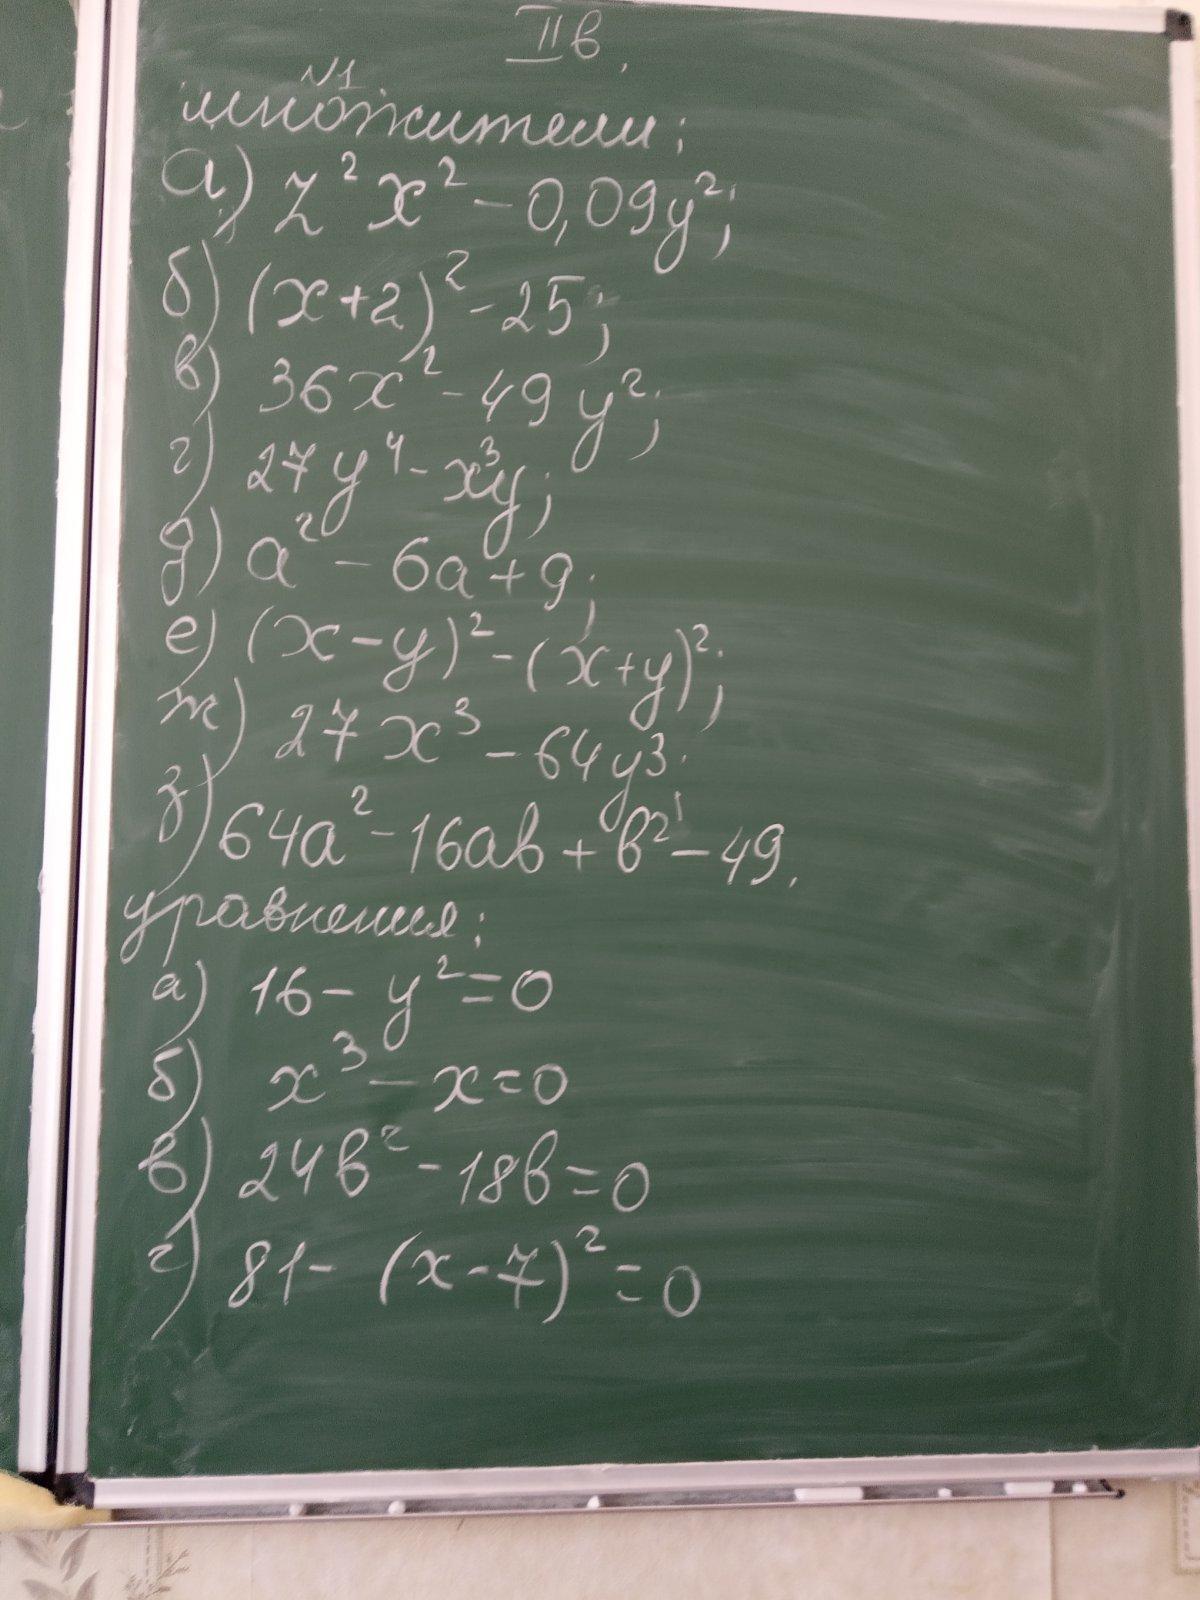 II в.
№1.
множители:
а) z² x² - 0,09y²;
б) (x+2)² - 25;
в) 36x² - 49y²;
г) 27y⁴ - x³y;
д) a² - 6a + 9;
е) (x - y)² - (x + y)²;
ж) 27x³ - 64y³;
з) 64a² - 16ab + b² - 49.
уравнения:
а) 16 - y² = 0
б) x³ - x = 0
в) 24b² - 18b = 0
г) 81 - (x - 7)² = 0